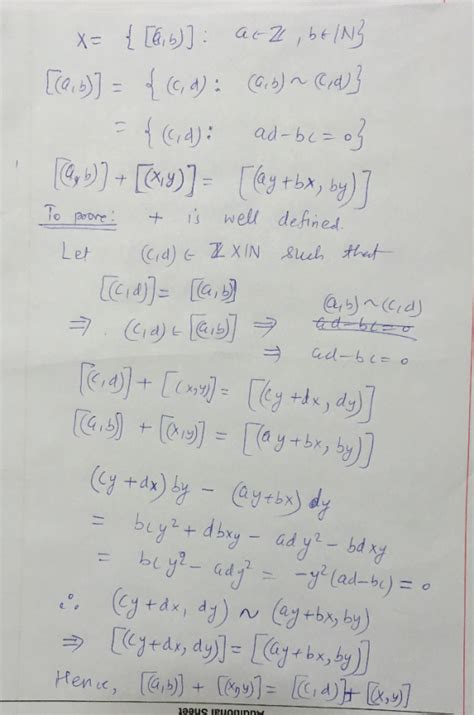 X = { [(a,b)] : a ∈ ℤ, b ∈ ℕ}
[(a,b)] = { (c,d) : (a,b) ~ (c,d)}
= { (c,d) : ad-bc = 0}
[(a,b)] + [(x,y)] = [(ay+bx, by)]
To prove: + is well defined.
Let (c,d) ∈ ℤ×ℕ such that
[(c,d)] = [(a,b)]
⇒ (c,d) ∈ [(a,b)] ⇒ (a,b) ~ (c,d)
ad-bc=0
⇒ ad-bc=0
[(c,d)] + [(x,y)] = [(cy+dx, dy)]
[(a,b)] + [(x,y)] = [(ay+bx, by)]
(cy+dx) by - (ay+bx) dy
= bcy² + dbxy - ady² - bdxy
= bcy² - ady² = -y²(ad-bc) = 0
∴ (cy+dx, dy) ~ (ay+bx, by)
⇒ [(cy+dx, dy)] = [(ay+bx, by)]
Hence, [(a,b)] + [(x,y)] = [(c,d)] + [(x,y)]
Additional Sheet